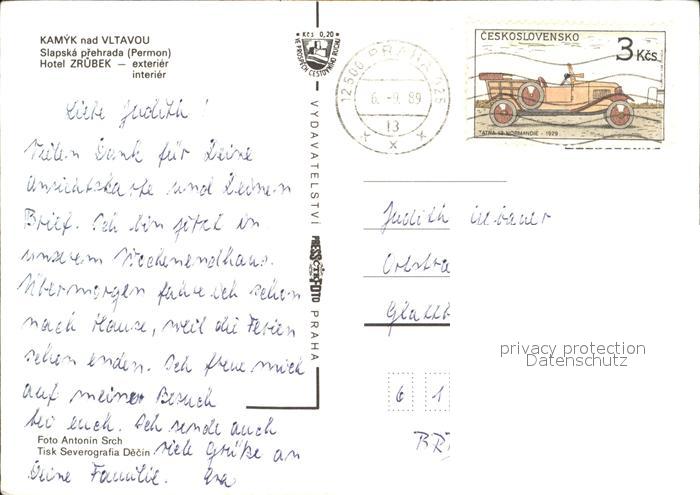 KAMÝK nad VLTAVOU
Slapská přehrada (Permon)
Hotel ZRŮBEK — exteriér
interiér
Liebe Judith!
Vielen Dank für Deine
Ansichtskarte und Deinen
Brief. Ich bin jetzt in
unserem Wochenendhaus.
Übermorgen fahre ich schon
nach Hause, weil die Ferien
schon enden. Ich freue mich
auf meinen Besuch
bei euch. Ich sende auch
viele Grüße an
Deine Familie. Eva
Foto Antonín Srch
Tisk Severografia Děčín
Kčs 0,20
VE PROSPĚCH CESTOVNÍHO RUCHU
VYDAVATELSTVÍ PRESSFOTO PRAHA
12500 PRAHA 025
6.-9.89
13
ČESKOSLOVENSKO
3 Kčs
TATRA 12 NORMANDIE - 1929
Judith
Glattb
privacy protection
Datenschutz
6 1
BR